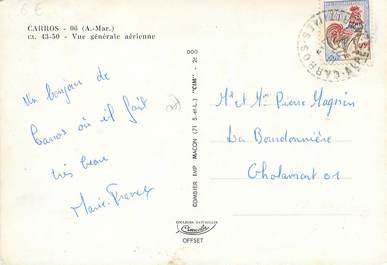 6€
CARROS - 06 (A.-Mar.)
CL. 43-50 - Vue générale aérienne
Un bonjour de
Carros où il fait
très beau
Marie-France
COMBIER IMP. MACON (71 S.-et-L.) "CIM" - 2e
000
COULEURS NATURELLES
Combier
OFFSET
CARROS
Mr et Mme Pierre Magnin
La Bourdonnière
Chalamont 01